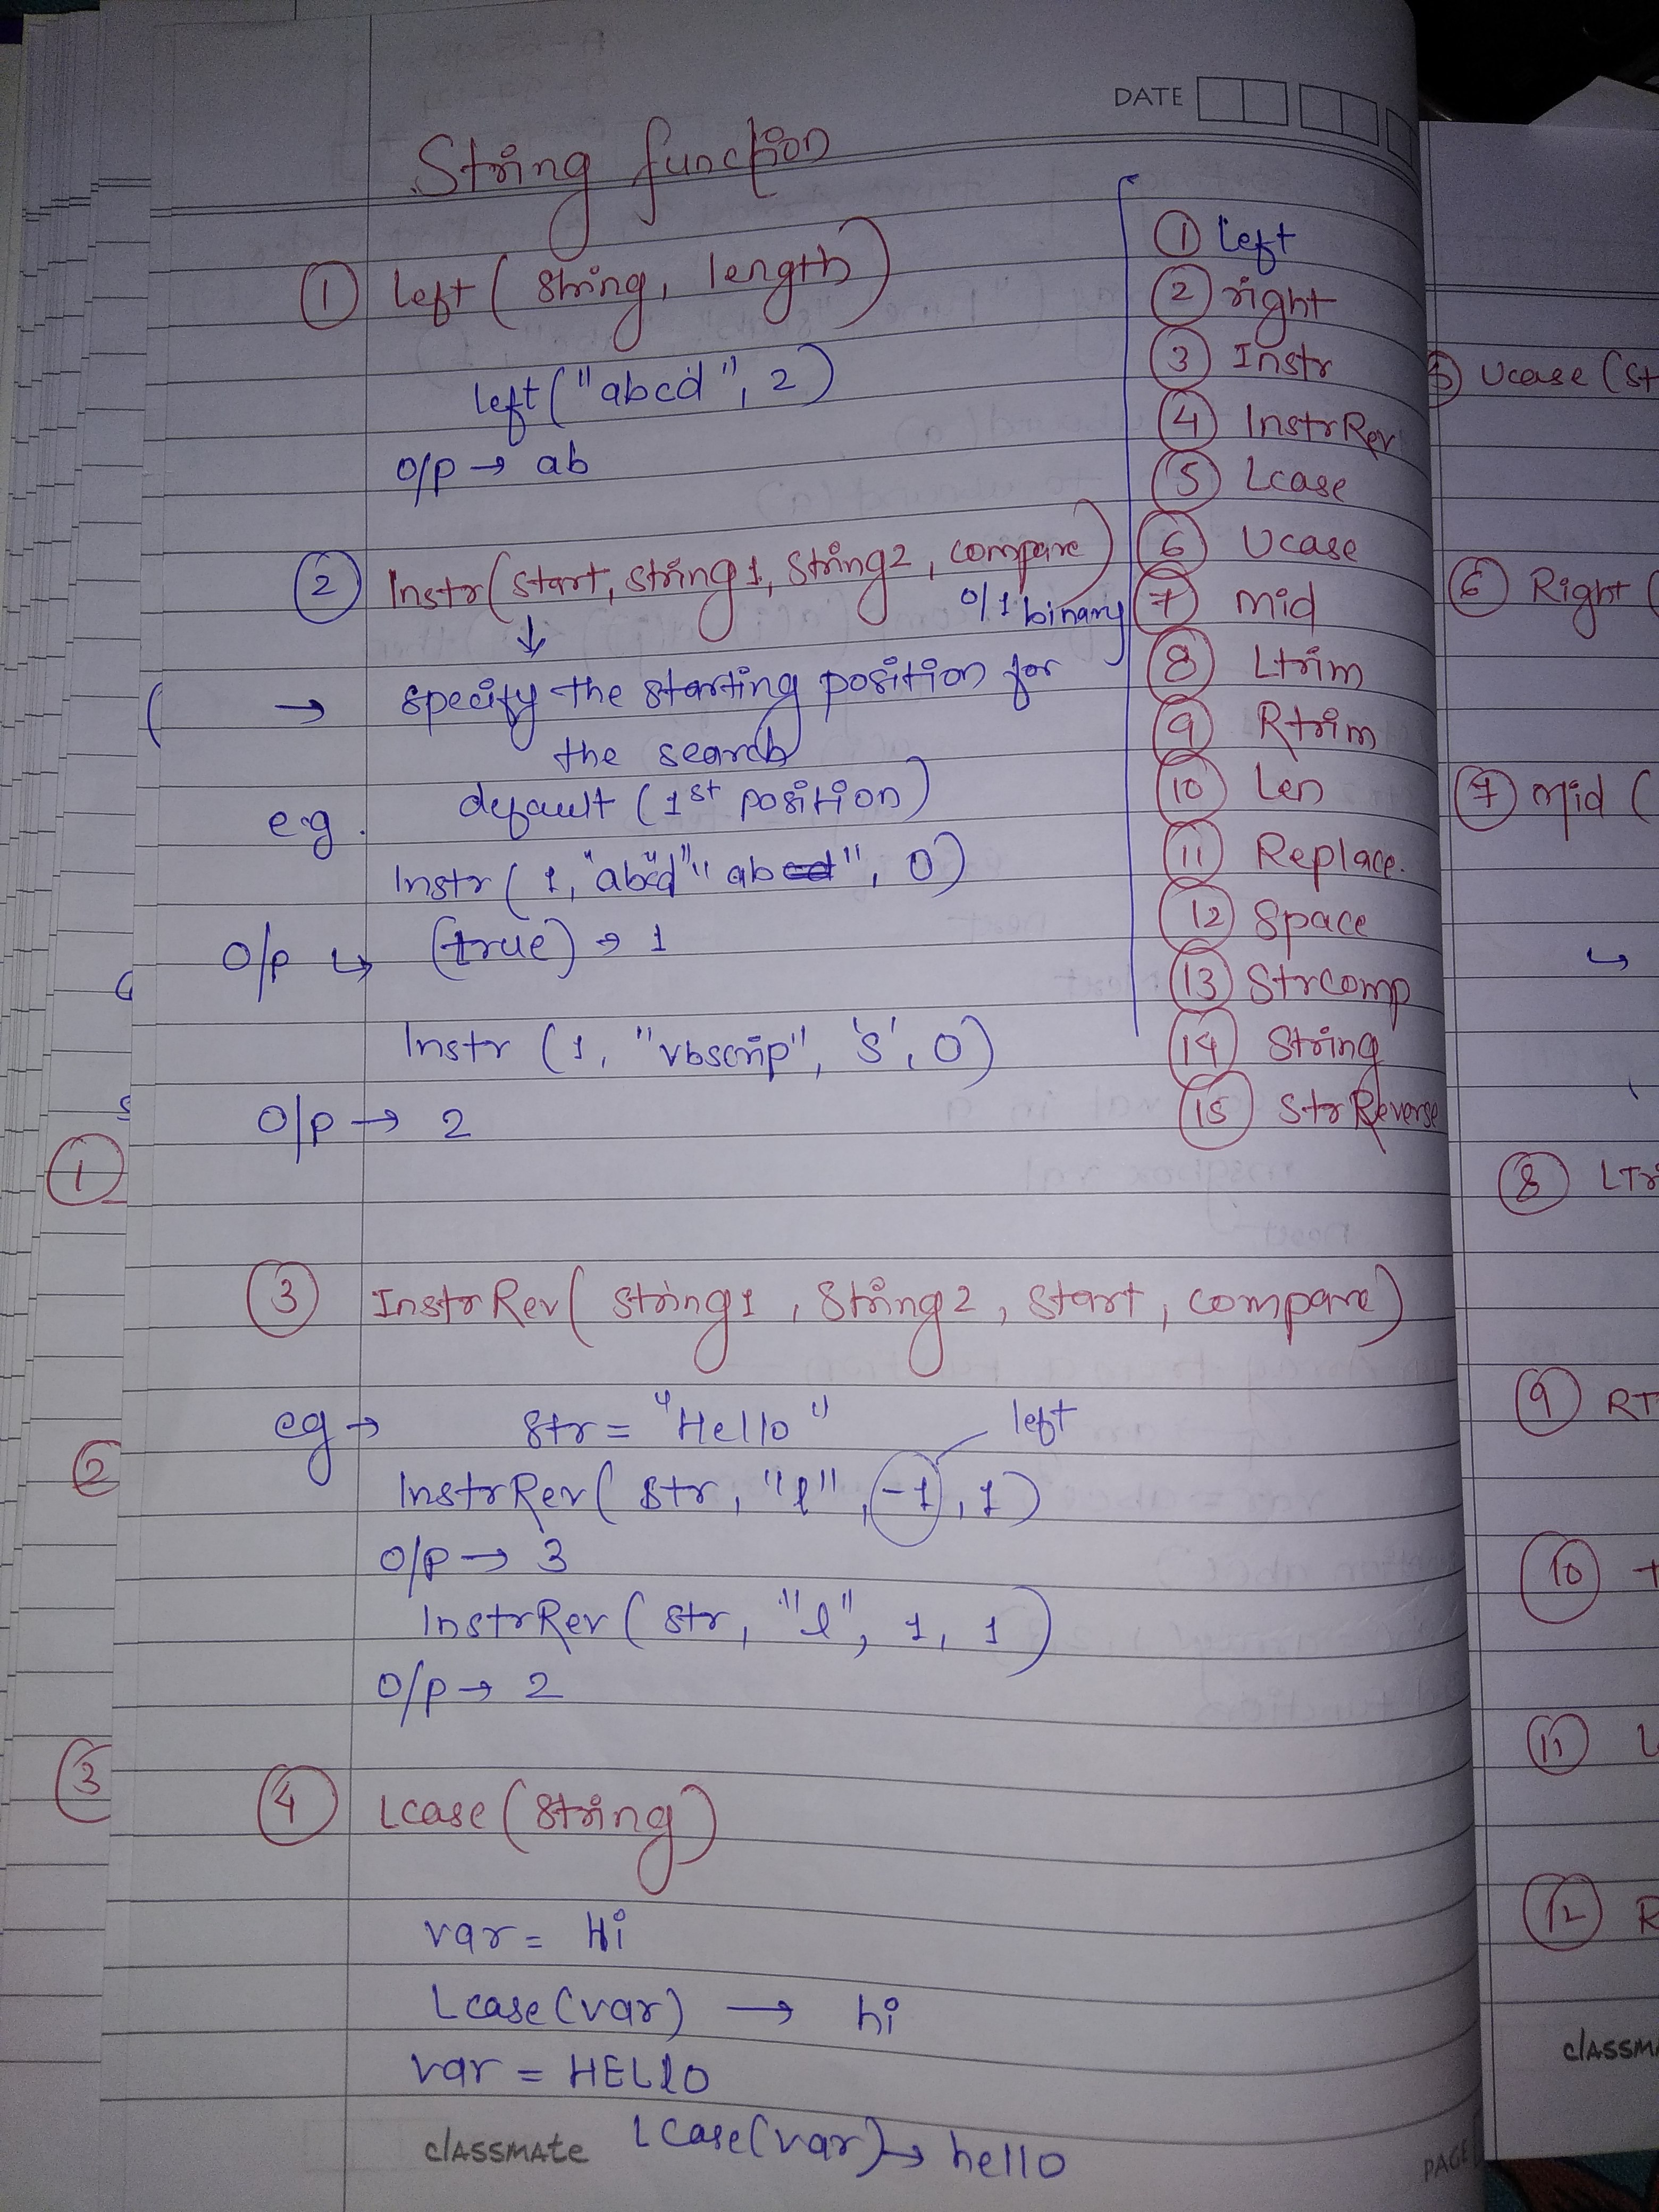 DATE
String function
① left ( string, length )
left ("abcd", 2)
o/p → ab
② Instr ( start, string1, string2, compare )
0/1 binary
↓
( → specify the starting position for
the search
e.g. default (1st position)
Instr ( 1, "abcd" "ab", 0 )
o/p ↳ (true) → 1
Instr (1, "vbscrip", 's', 0)
o/p → 2
③ InstrRev ( string1, string2, start, compare )
eg → str = "Hello"
left
InstrRev ( str, "l", -1, 1 )
o/p → 3
InstrRev ( str, "l", 1, 1 )
o/p → 2
④ Lcase ( string )
var = Hi
Lcase (var) → hi
var = HELlO
Lcase (var) → hello
classmate
PAGE
① left
② right
③ Instr
④ InstrRev
⑤ Lcase
⑥ Ucase
⑦ mid
⑧ Ltrim
⑨ Rtrim
⑩ Len
⑪ Replace.
⑫ Space
⑬ Strcomp
⑭ String
⑮ StrReverse
①
②
③
Ucase (St
⑥ Right (
⑦ mid (
↳
⑧ LTr
⑨ RT
⑩
⑪ L
⑫ R
classm